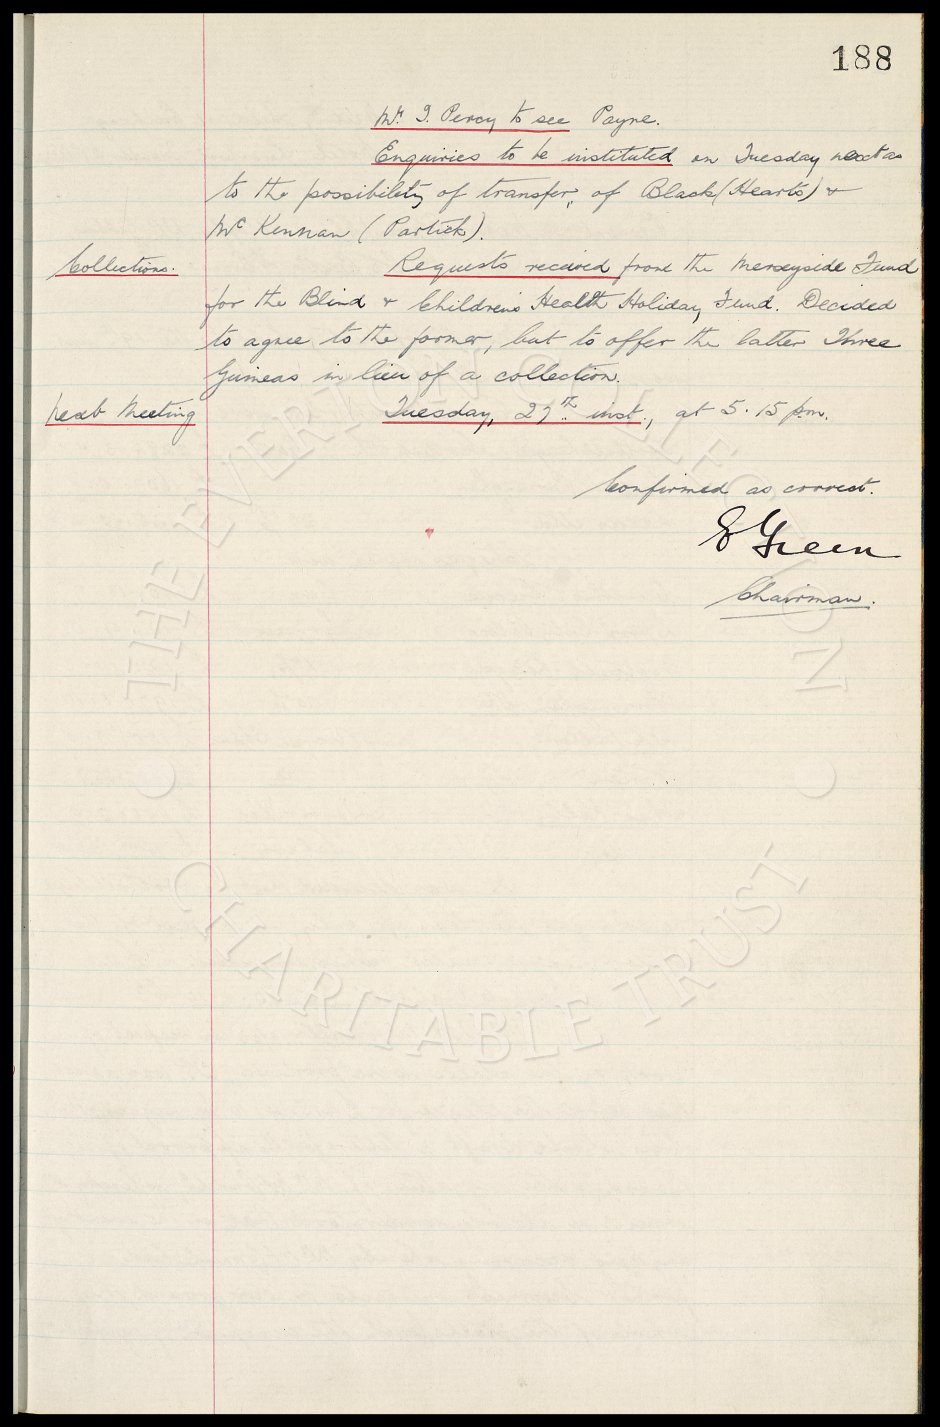 188
Mr. J. Percy to see Payne.
Enquiries to be instituted on Tuesday next as
to the possibility of transfer, of Black (Hearts) &
McKennan (Partick).
Collections. Requests received from the Merseyside Fund
for the Blind & Children's Health Holiday Fund. Decided
to agree to the former, but to offer the latter Three
Guineas in lieu of a collection.
Next Meeting Tuesday, 27th inst., at 5.15 p.m.
Confirmed as correct.
E Green
Chairman.
THE EVERTON COLLECTION
CHARITABLE TRUST